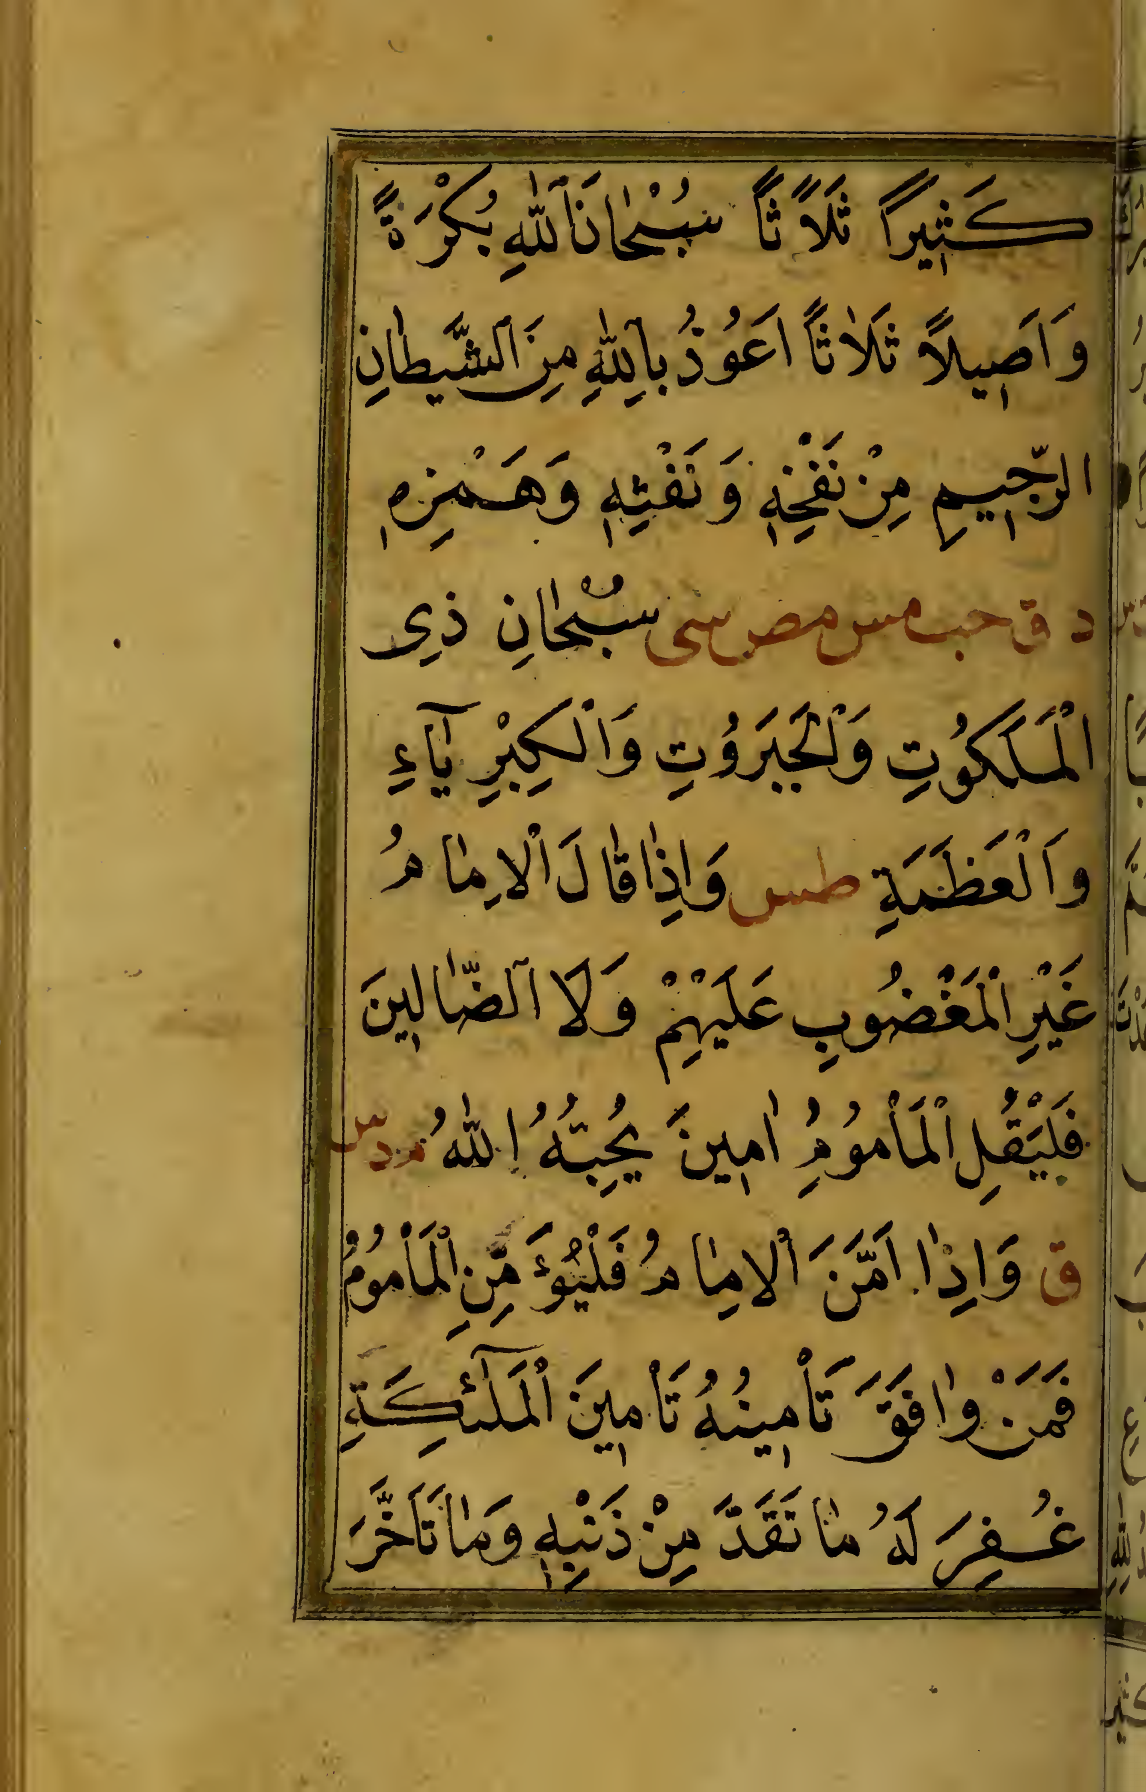 كَثِيرًا ثَلَاثًا سُبْحَانَ اللّٰهِ بُكْرَةً
وَاَصِيلًا ثَلَاثًا اَعُوذُ بِاللّٰهِ مِنَ الشَّيْطَانِ
الرَّجِيمِ مِنْ نَفْخِهِ وَنَفْثِهِ وَهَمْزِهِ
د ق حب مس مص سى سُبْحَانِ ذِى
الْمَلَكُوتِ وَالْجَبَرُوتِ وَالْكِبْرِيَآءِ
وَالْعَظَمَةِ طس وَاِذَا قَالَ الْاِمَامُ
غَيْرِ الْمَغْضُوبِ عَلَيْهِمْ وَلَا الضَّالِينَ
فَلْيَقُلِ الْمَأْمُومُ اٰمِينَ يُجِبْهُ اللّٰهُ م د س
ق وَاِذَا اَمَّنَ الْاِمَامُ فَلْيُؤَمِّنِ الْمَأْمُومُ
فَمَنْ وَافَقَ تَأْمِينُهُ تَأْمِينَ الْمَلٰٓئِكَةِ
غُفِرَ لَهُ مَا تَقَدَّ مِنْ ذَنْبِهِ وَمَا تَاَخَّرَ